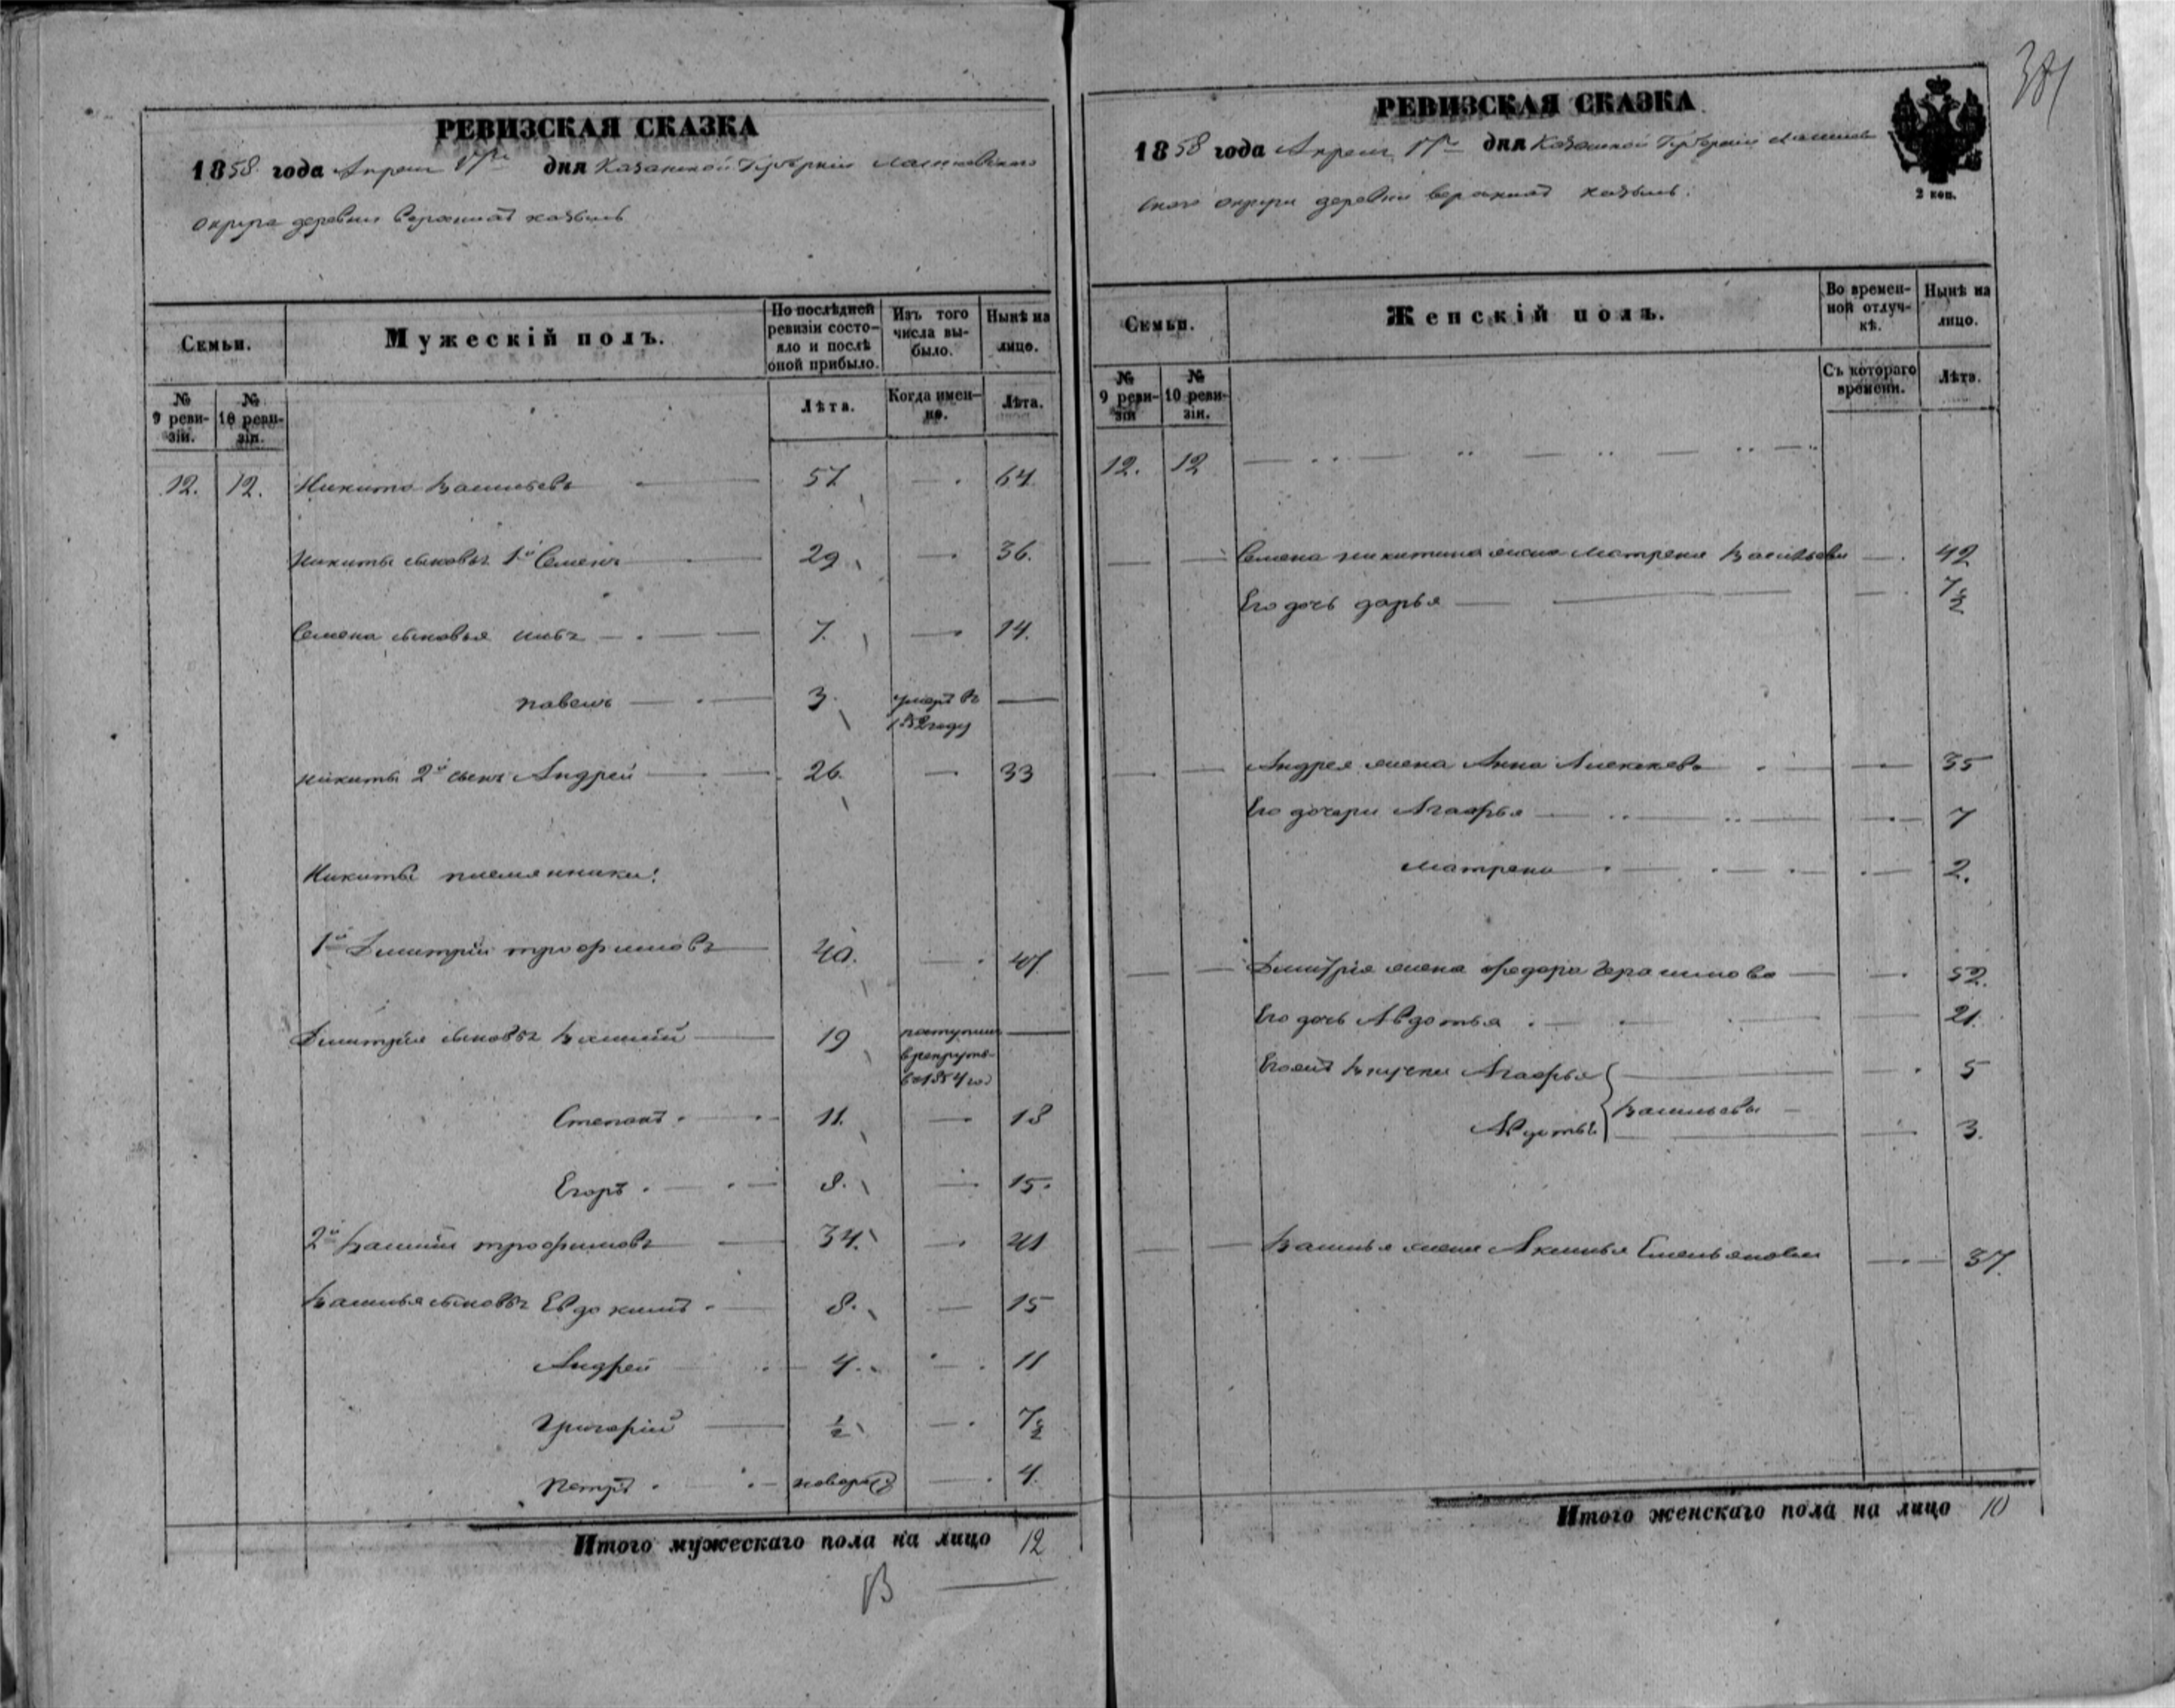 381
РЕВИЗСКАЯ СКАЗКА
1858 года Апреля дня Казанской Губерніи Лаишевскаго
округа деревни верхнихъ
Семьи.
Мужескій полъ.
По послѣдней ревизіи состо-яло и послѣ оной прибыло.
Изъ того числа вы-было.
Нынѣ на лицо.
№ 9 реви-зіи.
№ 10 реви-зіи.
Лѣта.
Когда имен-но.
Лѣта.
12. 12. Никита Васильевъ 57 64
Никиты сыновья 1й Семенъ 29 36.
Семена сыновья 7. 14.
павелъ 3. умеръ въ 1852 году
никиты 2й сынъ Андрей 26. 33
Никиты племянники:
1й Дмитрій трофимовъ 40. 47
Дмитрія сыновья Василій 19 поступилъ в рекруты в 1854 го
Степанъ 11. 18
Егоръ 8. 15.
2й Василій трофимовъ 34. 41
Василья сыновья Евдокимъ 8. 15
Андрей 4. 11
Григорій ½ 7½
петръ новорож 4.
Итого мужескаго пола на лицо 12
РЕВИЗСКАЯ СКАЗКА
1858 года Апреля дня Казанской Губерніи Лаишев
скаго округа деревни верхнихъ
2 коп.
Семьи.
Женскій полъ.
Во времен-ной отлуч-кѣ.
Нынѣ на лицо.
№ 9 реви-зіи
№ 10 реви-зіи.
Съ котораго времени.
Лѣта.
12. 12
Семена никитина жена Матрена Васильева 42
Его дочь дарья 7½
Андрея жена Анна Алексеева 35
Его дочери Агафья 7
матрена 2.
Дмитрія жена федора Герасимова 52.
Его дочь Авдотья 21.
Внучки Агафья 5
Васильевы
Авдотья 3.
Василья жена Аксинья Емельянова 37.
Итого женскаго пола на лицо 10